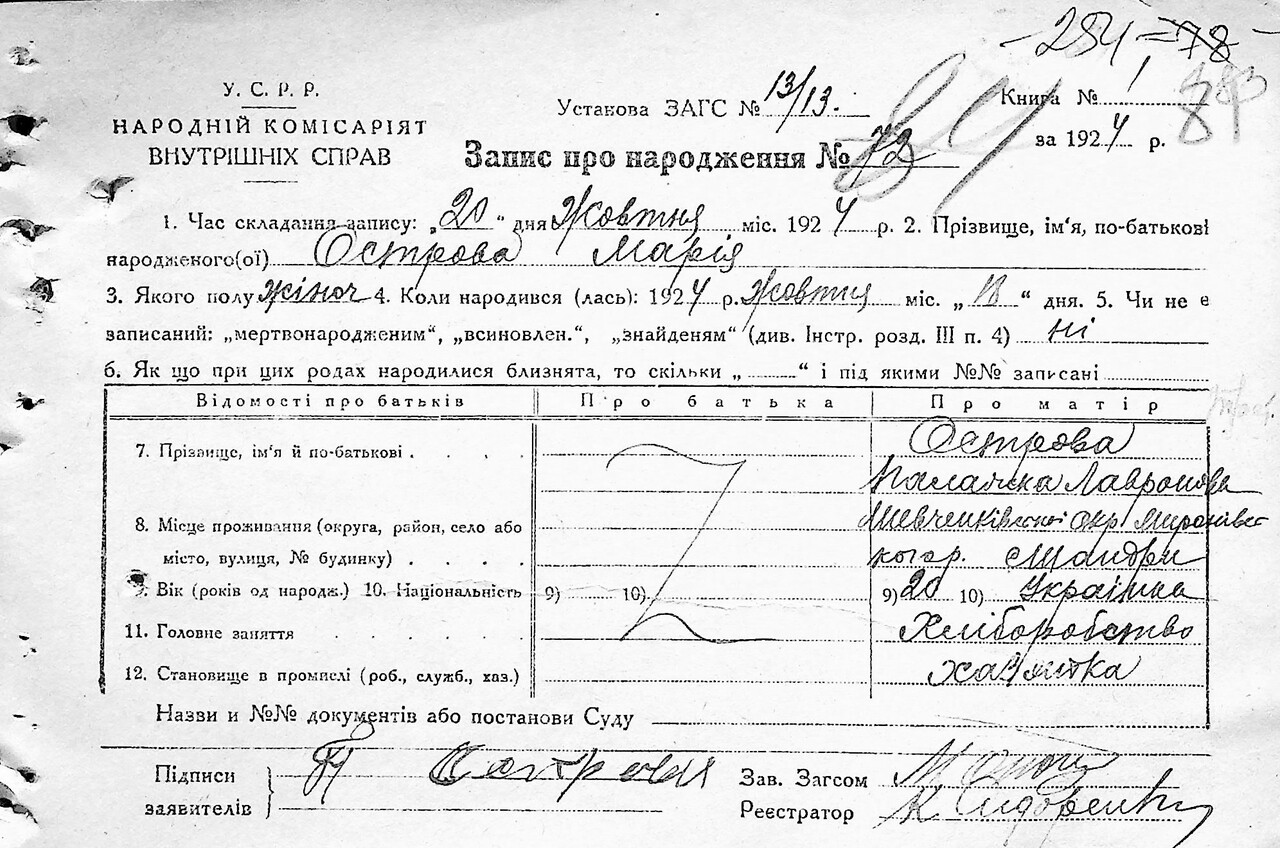 - 284 = 78 -
883
У. С. Р. Р.
НАРОДНІЙ КОМІСАРІЯТ
ВНУТРІШНІХ СПРАВ
Установа ЗАГС № 13/13.
Книга № 1
за 1924 р.
Запис про народження № 72
1. Час складання запису: „20“ дня Жовтня міс. 1924 р. 2. Прізвище, ім‘я, по-батькові
народженого(ої) Острова Марія
3. Якого полу жіноч 4. Коли народився (лась): 1924 р. Жовтня міс. „18“ дня. 5. Чи не є
записаний: „мертвонародженим“, „всиновлен.“, „знайденям“ (див. Інстр. розд. III п. 4) ні
6. Як що при цих родах народилися близнята, то скільки „ “ і під якими №№ записані
Відомості про батьків Про батька Про матір
7. Прізвище, ім‘я й по-батькові Острова
Палажка Лавронова
8. Місце проживання (округа, район, село або Шевченківської окр Миронівс
місто, вулиця, № будинку) Шандри
9. Вік (років од народж.) 10. Національність 9) 10) 9) 20 10) Українка
11. Головне заняття Хліборобство
12. Становище в промислі (роб., служб., хаз.) хазяйка
Назви и №№ документів або постанови Суду
Підписи Острова Зав. Загсом
заявителів Реєстратор Сидоренко